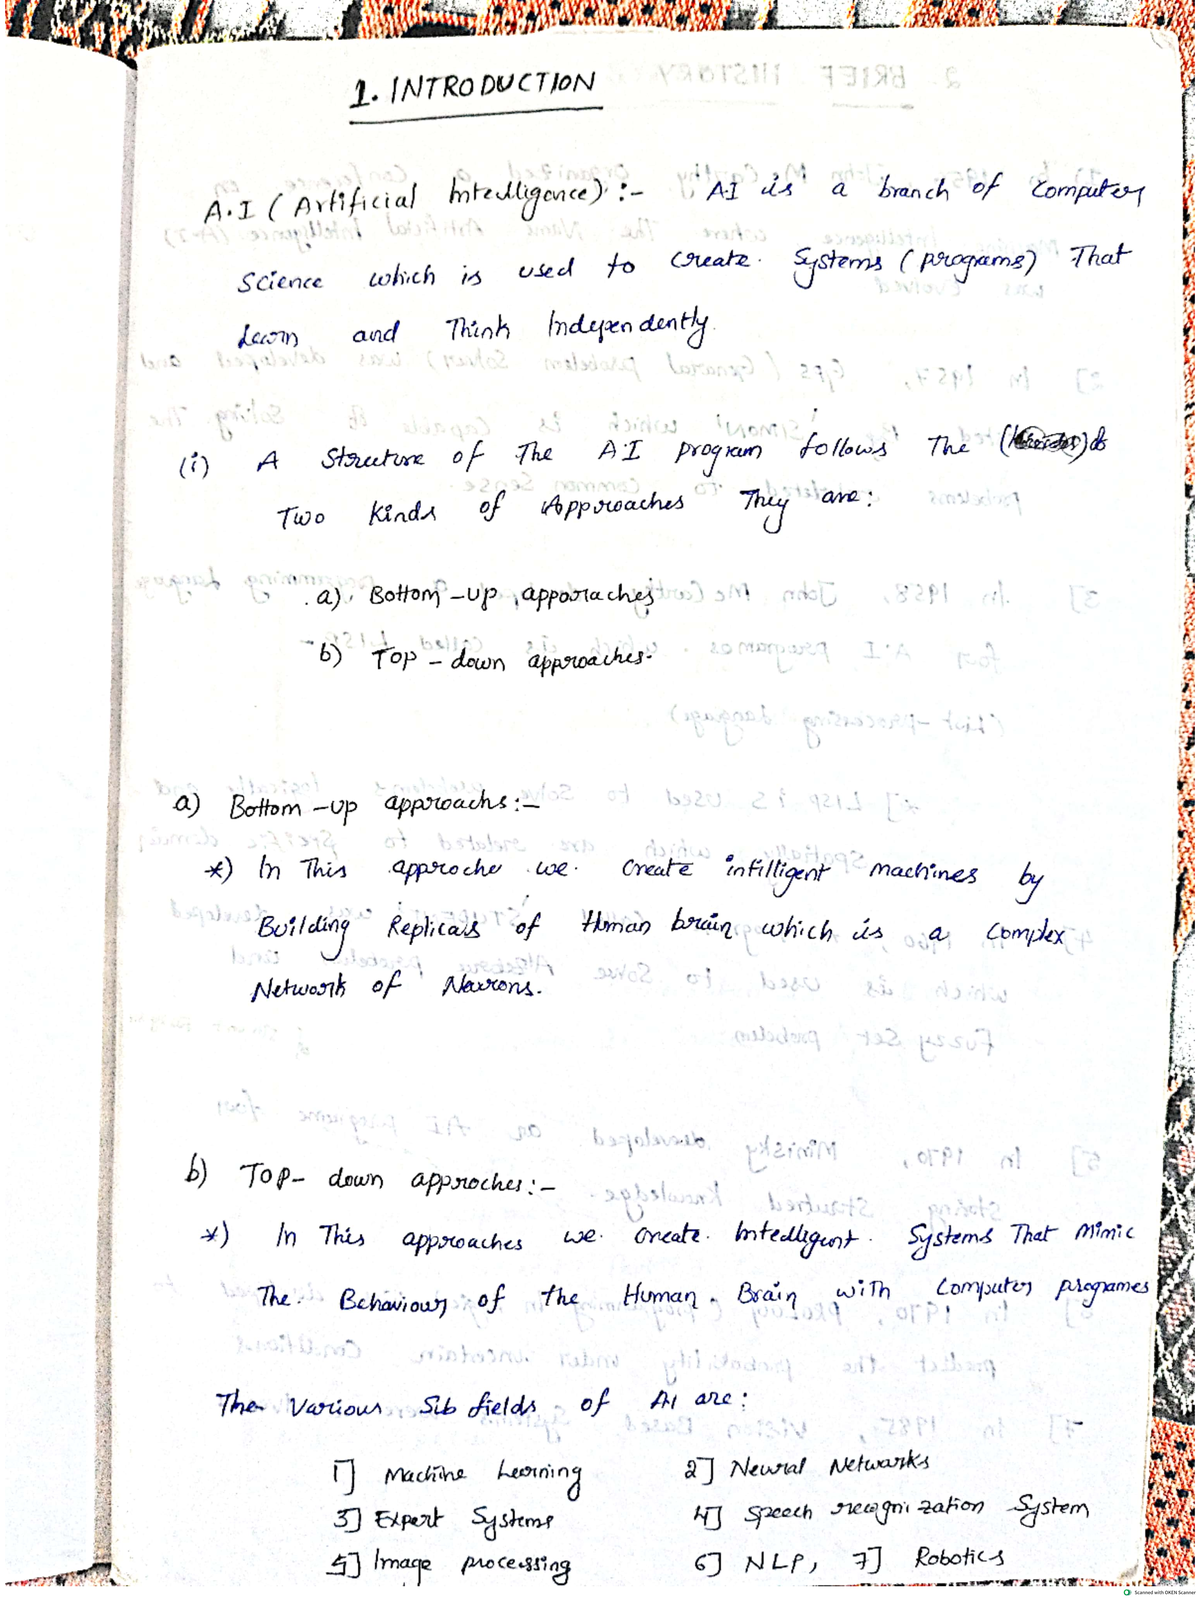 1. INTRODUCTION
A.I (Artificial Intelligence) :- AI is a branch of Computer
Science which is used to create Systems (programs) That
Learn and Think Independently.
(i) A Structure of The A.I program follows The
Two Kinds of Approaches They are:
a) Bottom-up apporaches
b) Top-down approaches.
a) Bottom-up approachs:-
*) In This approche we create intilligent machines by
Building Replicas of Human brain which is a Complex
Network of Neurons.
b) Top- down approches:-
*) In This approaches we create Intelligent Systems That Mimic
The Behaviour of the Human Brain with Computer programes
The Various Sub fields of AI are:
1] Machine Learning 2] Neural Networks
3] Expert Systems 4] Speech recognization System
5] Image processing 6] NLP, 7] Robotics
Scanned with OKEN Scanner